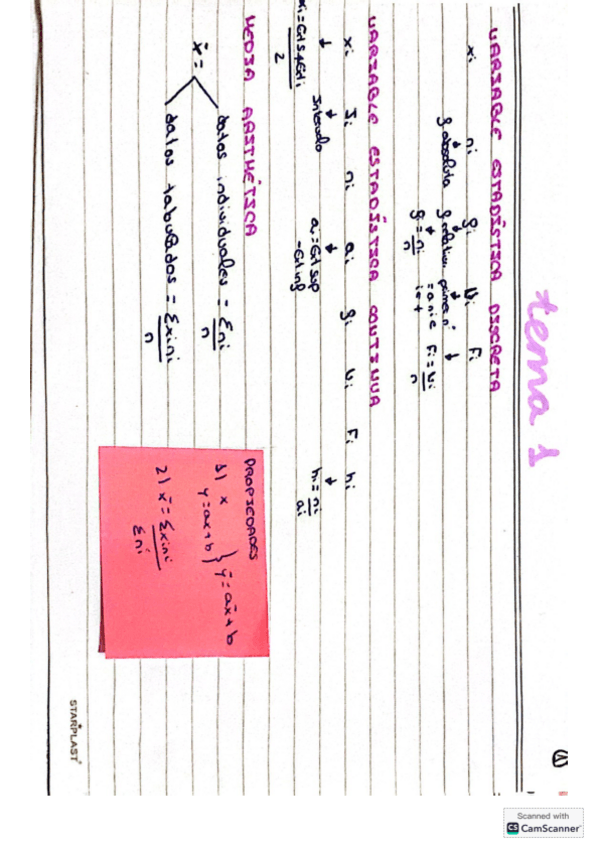 tema 1
VARIABLE ESTADÍSTICA DISCRETA
xi ni fi Ni Fi
f absoluta f relativa primer nº
fi = ni/n = anie i+1 Fi = Ni/n
VARIABLE ESTADÍSTICA CONTINUA
xi Ii ni ai fi Ni Fi hi
Intervalo ai = Ext sup - Ext inf hi = ni/ai
2
MEDIA ARITMÉTICA
x̄ =
datos individuales = Σni/n
datos tabulados = Σxini/n
PROPIEDADES
1) x
y = ax + b } ȳ = ax̄ + b
2) x̄ = Σxini/Σni
STARPLAST
Scanned with
CS CamScanner